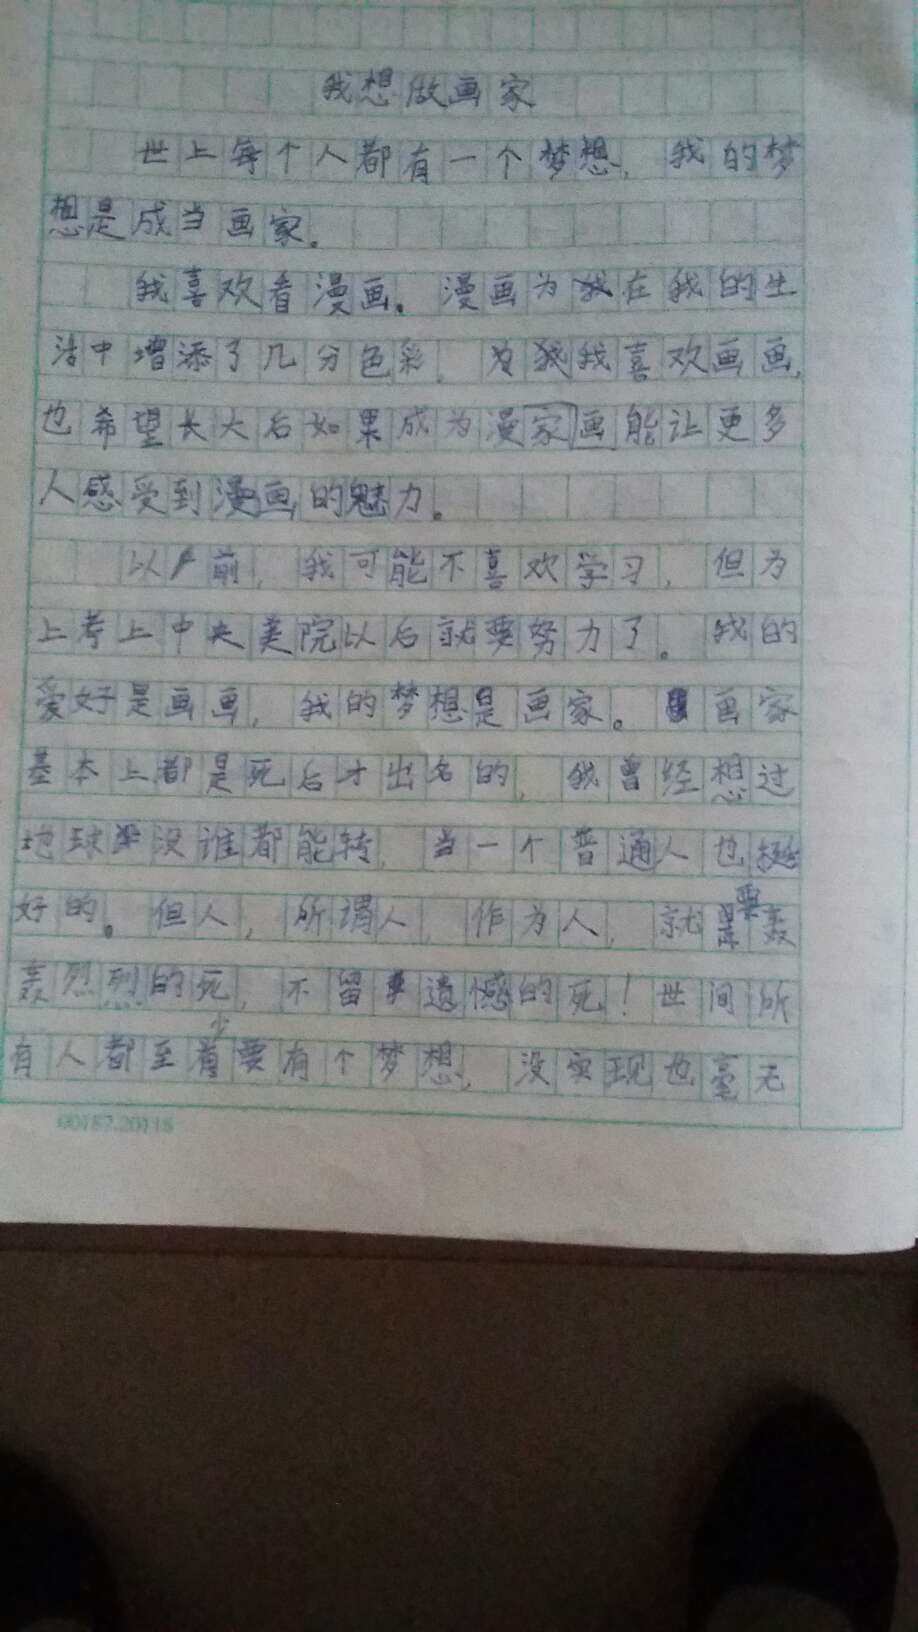 我想做画家
世上每个人都有一个梦想，我的梦
想是成当画家。
我喜欢看漫画。漫画为我在我的生
活中增添了几分色彩，为我喜欢画画，
也希望长大后如果成为漫家画能让更多
人感受到漫画的魅力。
以前，我可能不喜欢学习，但为
上考上中央美院以后就要努力了。我的
爱好是画画，我的梦想是画家。画家
基本上都是死后才出名的，我曾经想过
地球没谁都能转，当一个普通人也挺
好的。但人，所谓人，作为人，就要轰
轰烈烈的死，不留遗憾的死！世间所
有人都至少要有个梦想，没实现也毫无